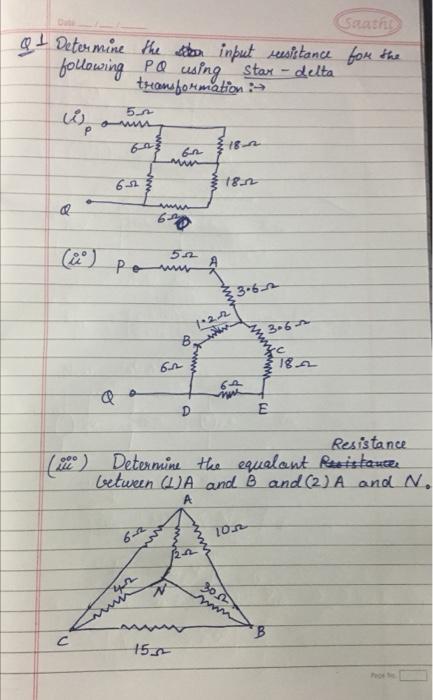 Date
Saathi
Q1 Determine the input resistance for the
following PQ using star-delta
transformation :→
(i)
5Ω
P
6Ω
6Ω
18Ω
6Ω
18Ω
Q
6Ω
(ii)
P
5Ω
A
3.6Ω
1.2Ω
3.6Ω
B
C
6Ω
18Ω
6Ω
Q
D
E
Resistance
(iii) Determine the equalant
between (1) A and B and (2) A and N.
A
6Ω
10Ω
2Ω
4Ω
N
30Ω
C
B
15Ω
Page No.